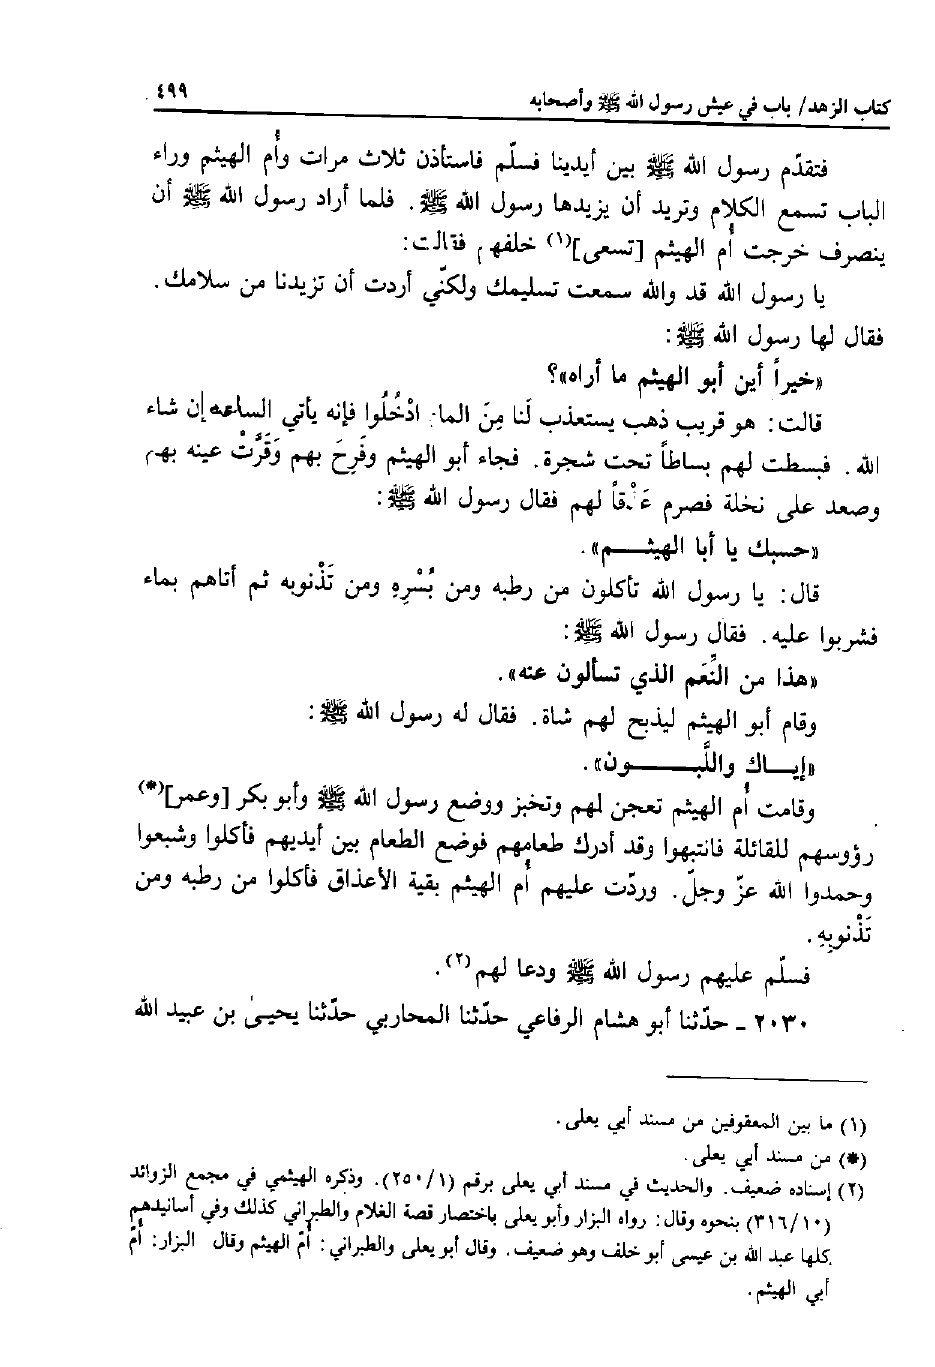 كتاب الزهد/ باب في عيش رسول الله ﷺ وأصحابه ٤٩٩
فتقدّم رسول الله ﷺ بين أيدينا فسلّم فاستأذن ثلاث مرات وأُم الهيثم وراء
الباب تسمع الكلام وتريد أن يزيدها رسول الله ﷺ. فلما أراد رسول الله ﷺ أن
ينصرف خرجت أُم الهيثم [تسعى](١) خلفهم فقالت:
يا رسول الله قد والله سمعت تسليمك ولكنّي أردت أن تزيدنا من سلامك.
فقال لها رسول الله ﷺ:
«خيراً أين أبو الهيثم ما أراه»؟
قالت: هو قريب ذهب يستعذب لَنا مِنَ الماء ادْخُلُوا فإنه يأتي الساعه إن شاء
الله. فبسطت لهم بساطاً تحت شجرة. فجاء أبو الهيثم وفَرِحَ بهم وَقَرَّتْ عينه بهم
وصعد على نخلة فصرم عَذْقاً لهم فقال رسول الله ﷺ:
«حسبك يا أبا الهيثـــــم».
قال: يا رسول الله تأكلون من رطبه ومن بُسْرِهِ ومن تَذْنوبه ثم أتاهم بماء
فشربوا عليه. فقال رسول الله ﷺ:
«هذا من النَّعَم الذي تسألون عنه».
وقام أبو الهيثم ليذبح لهم شاة. فقال له رسول الله ﷺ:
«إيـــاك واللَّبـــــــون».
وقامت أُم الهيثم تعجن لهم وتخبز ووضع رسول الله ﷺ وأبو بكر [وعمر](*)
رؤوسهم للقائلة فانتبهوا وقد أدرك طعامهم فوضع الطعام بين أيديهم فأكلوا وشبعوا
وحمدوا الله عزّ وجلّ. وردّت عليهم أُم الهيثم بقية الأعذاق فأكلوا من رطبه ومن
تَذْنوبِهِ.
فسلّم عليهم رسول الله ﷺ ودعا لهم(٢).
٢٠٣٠ ـ حدّثنا أبو هشام الرفاعي حدّثنا المحاربي حدّثنا يحيىٰ بن عبيد الله
(١) ما بين المعقوفين من مسند أبي يعلى.
(*) من مسند أبي يعلى.
(٢) إسناده ضعيف. والحديث في مسند أبي يعلى برقم (٢٥٠/١). وذكره الهيثمي في مجمع الزوائد
(٣١٦/١٠) بنحوه وقال: رواه البزار وأبو يعلى باختصار قصة الغلام والطبراني كذلك وفي أسانيدهم
كلها عبد الله بن عيسى أبو خلف وهو ضعيف. وقال أبو يعلى والطبراني: أمّ الهيثم وقال البزار: أمّ
أبي الهيثم.